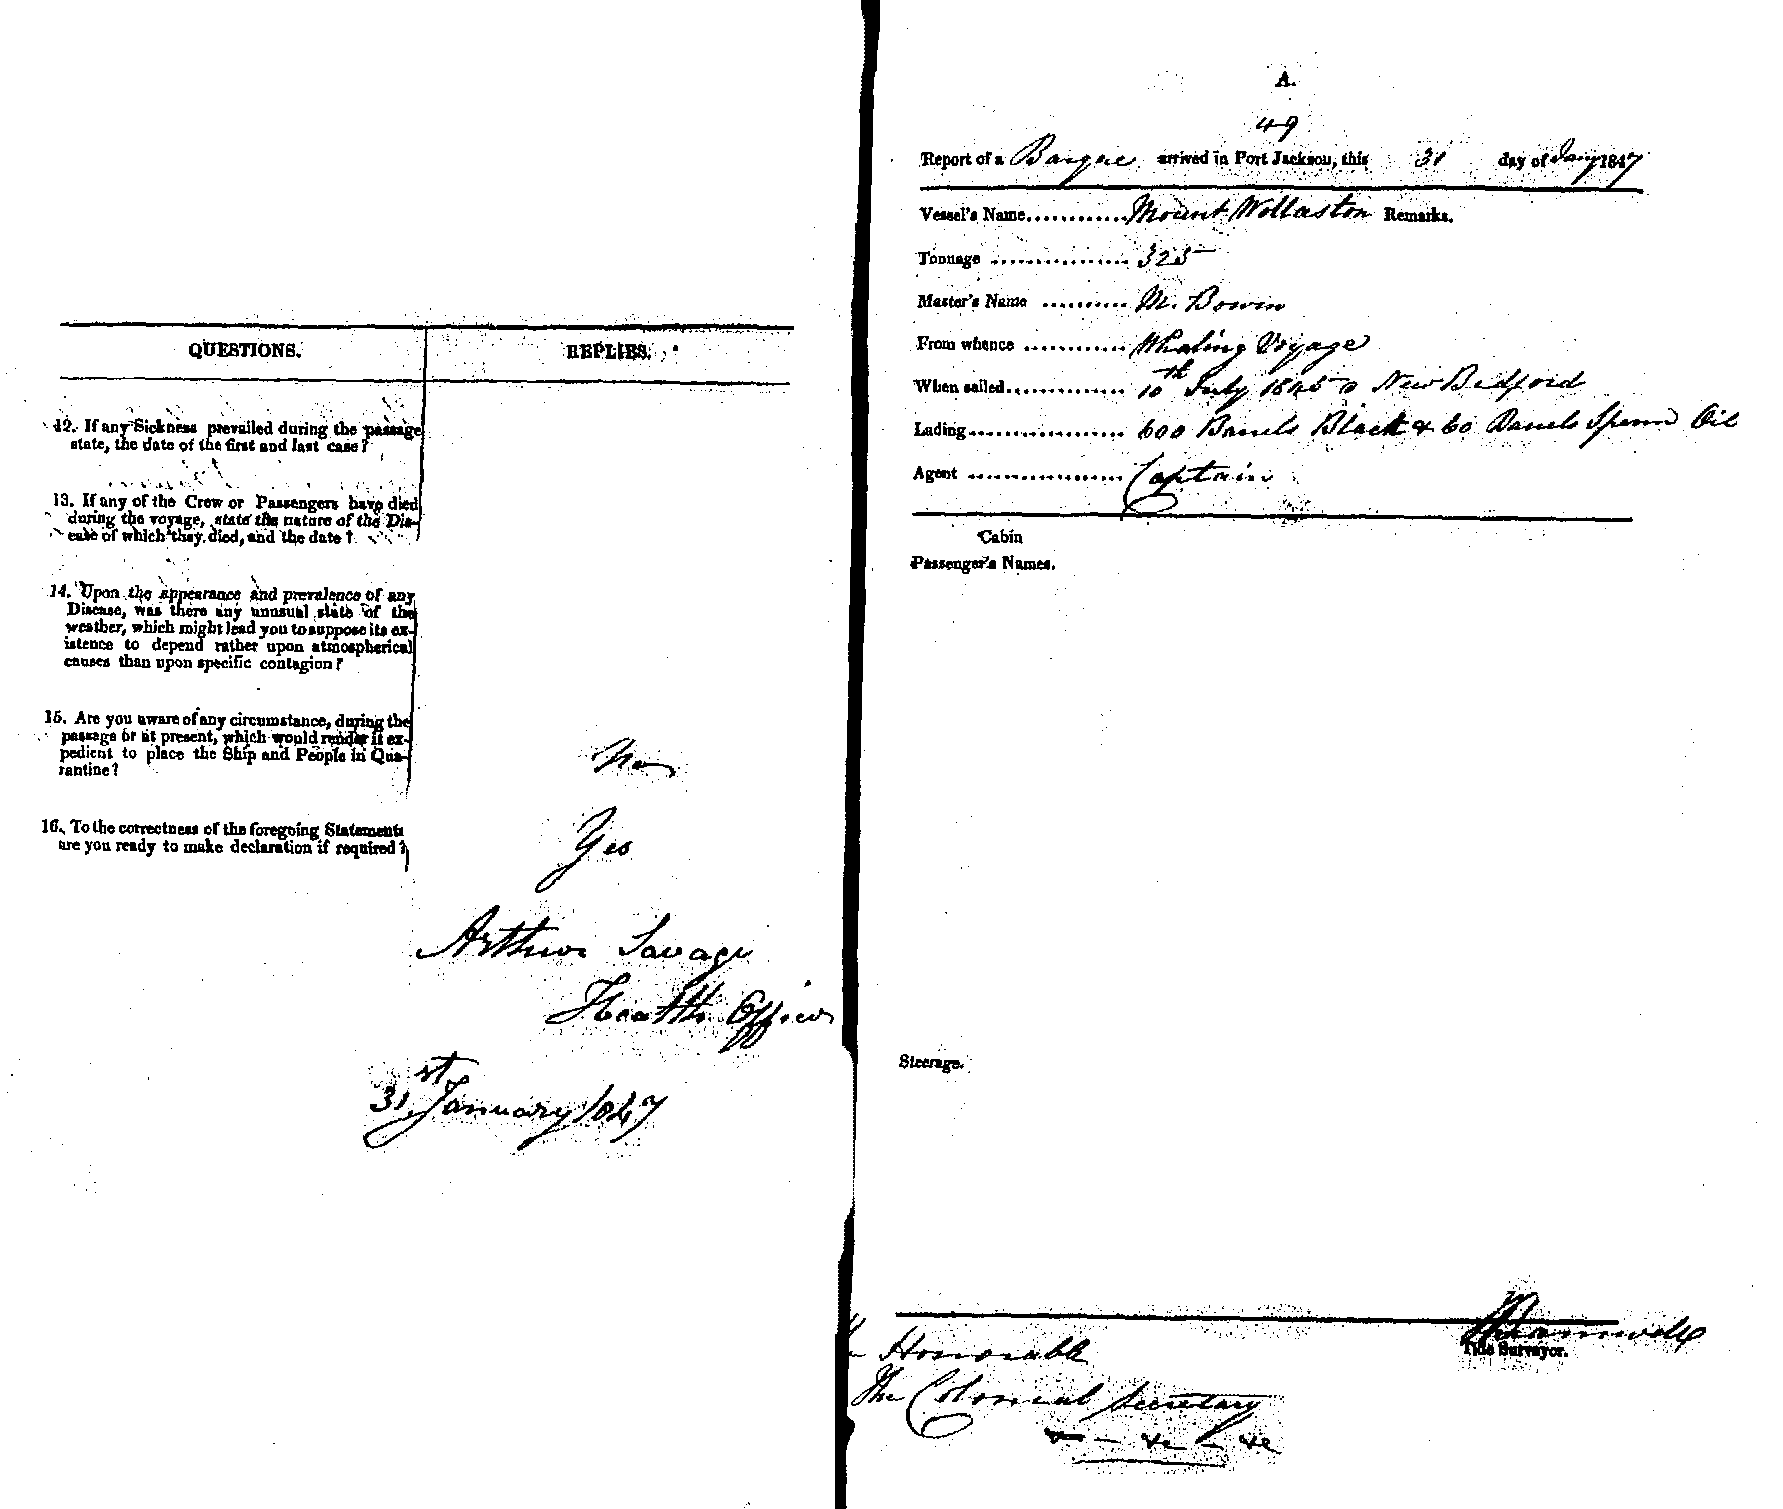 QUESTIONS. REPLIES.
12. If any Sickness prevailed during the passage
state, the date of the first and last case?
13. If any of the Crew or Passengers have died
during the voyage, state the nature of the Dis-
ease of which they died, and the date?
14. Upon the appearance and prevalence of any
Disease, was there any unusual state of the
weather, which might lead you to suppose its ex-
istence to depend rather upon atmospherical
causes than upon specific contagion?
15. Are you aware of any circumstance, during the
passage or at present, which would render it ex-
pedient to place the Ship and People in Qua-
rantine?
No
16. To the correctness of the foregoing Statements
are you ready to make declaration if required?
Yes
Arthur Savage
Health Officer
31st January 1847
A.
49
Report of a Barque arrived in Port Jackson, this 31 day of Jany 1847
Vessel's Name............Mount Wollaston Remarks.
Tonnage ................ 325
Master's Name .......... M. Bowin
From whence ............ Whaling Voyage
When sailed............. 10th July 1845 New Bedford
Lading.................. 600 Barrels Black & 60 Barrels Sperm Oil
Agent .................. Captain
Cabin
Passenger's Names.
Steerage.
Tide Surveyor.
Honorable
The Colonial Secretary
&c - &c - &c